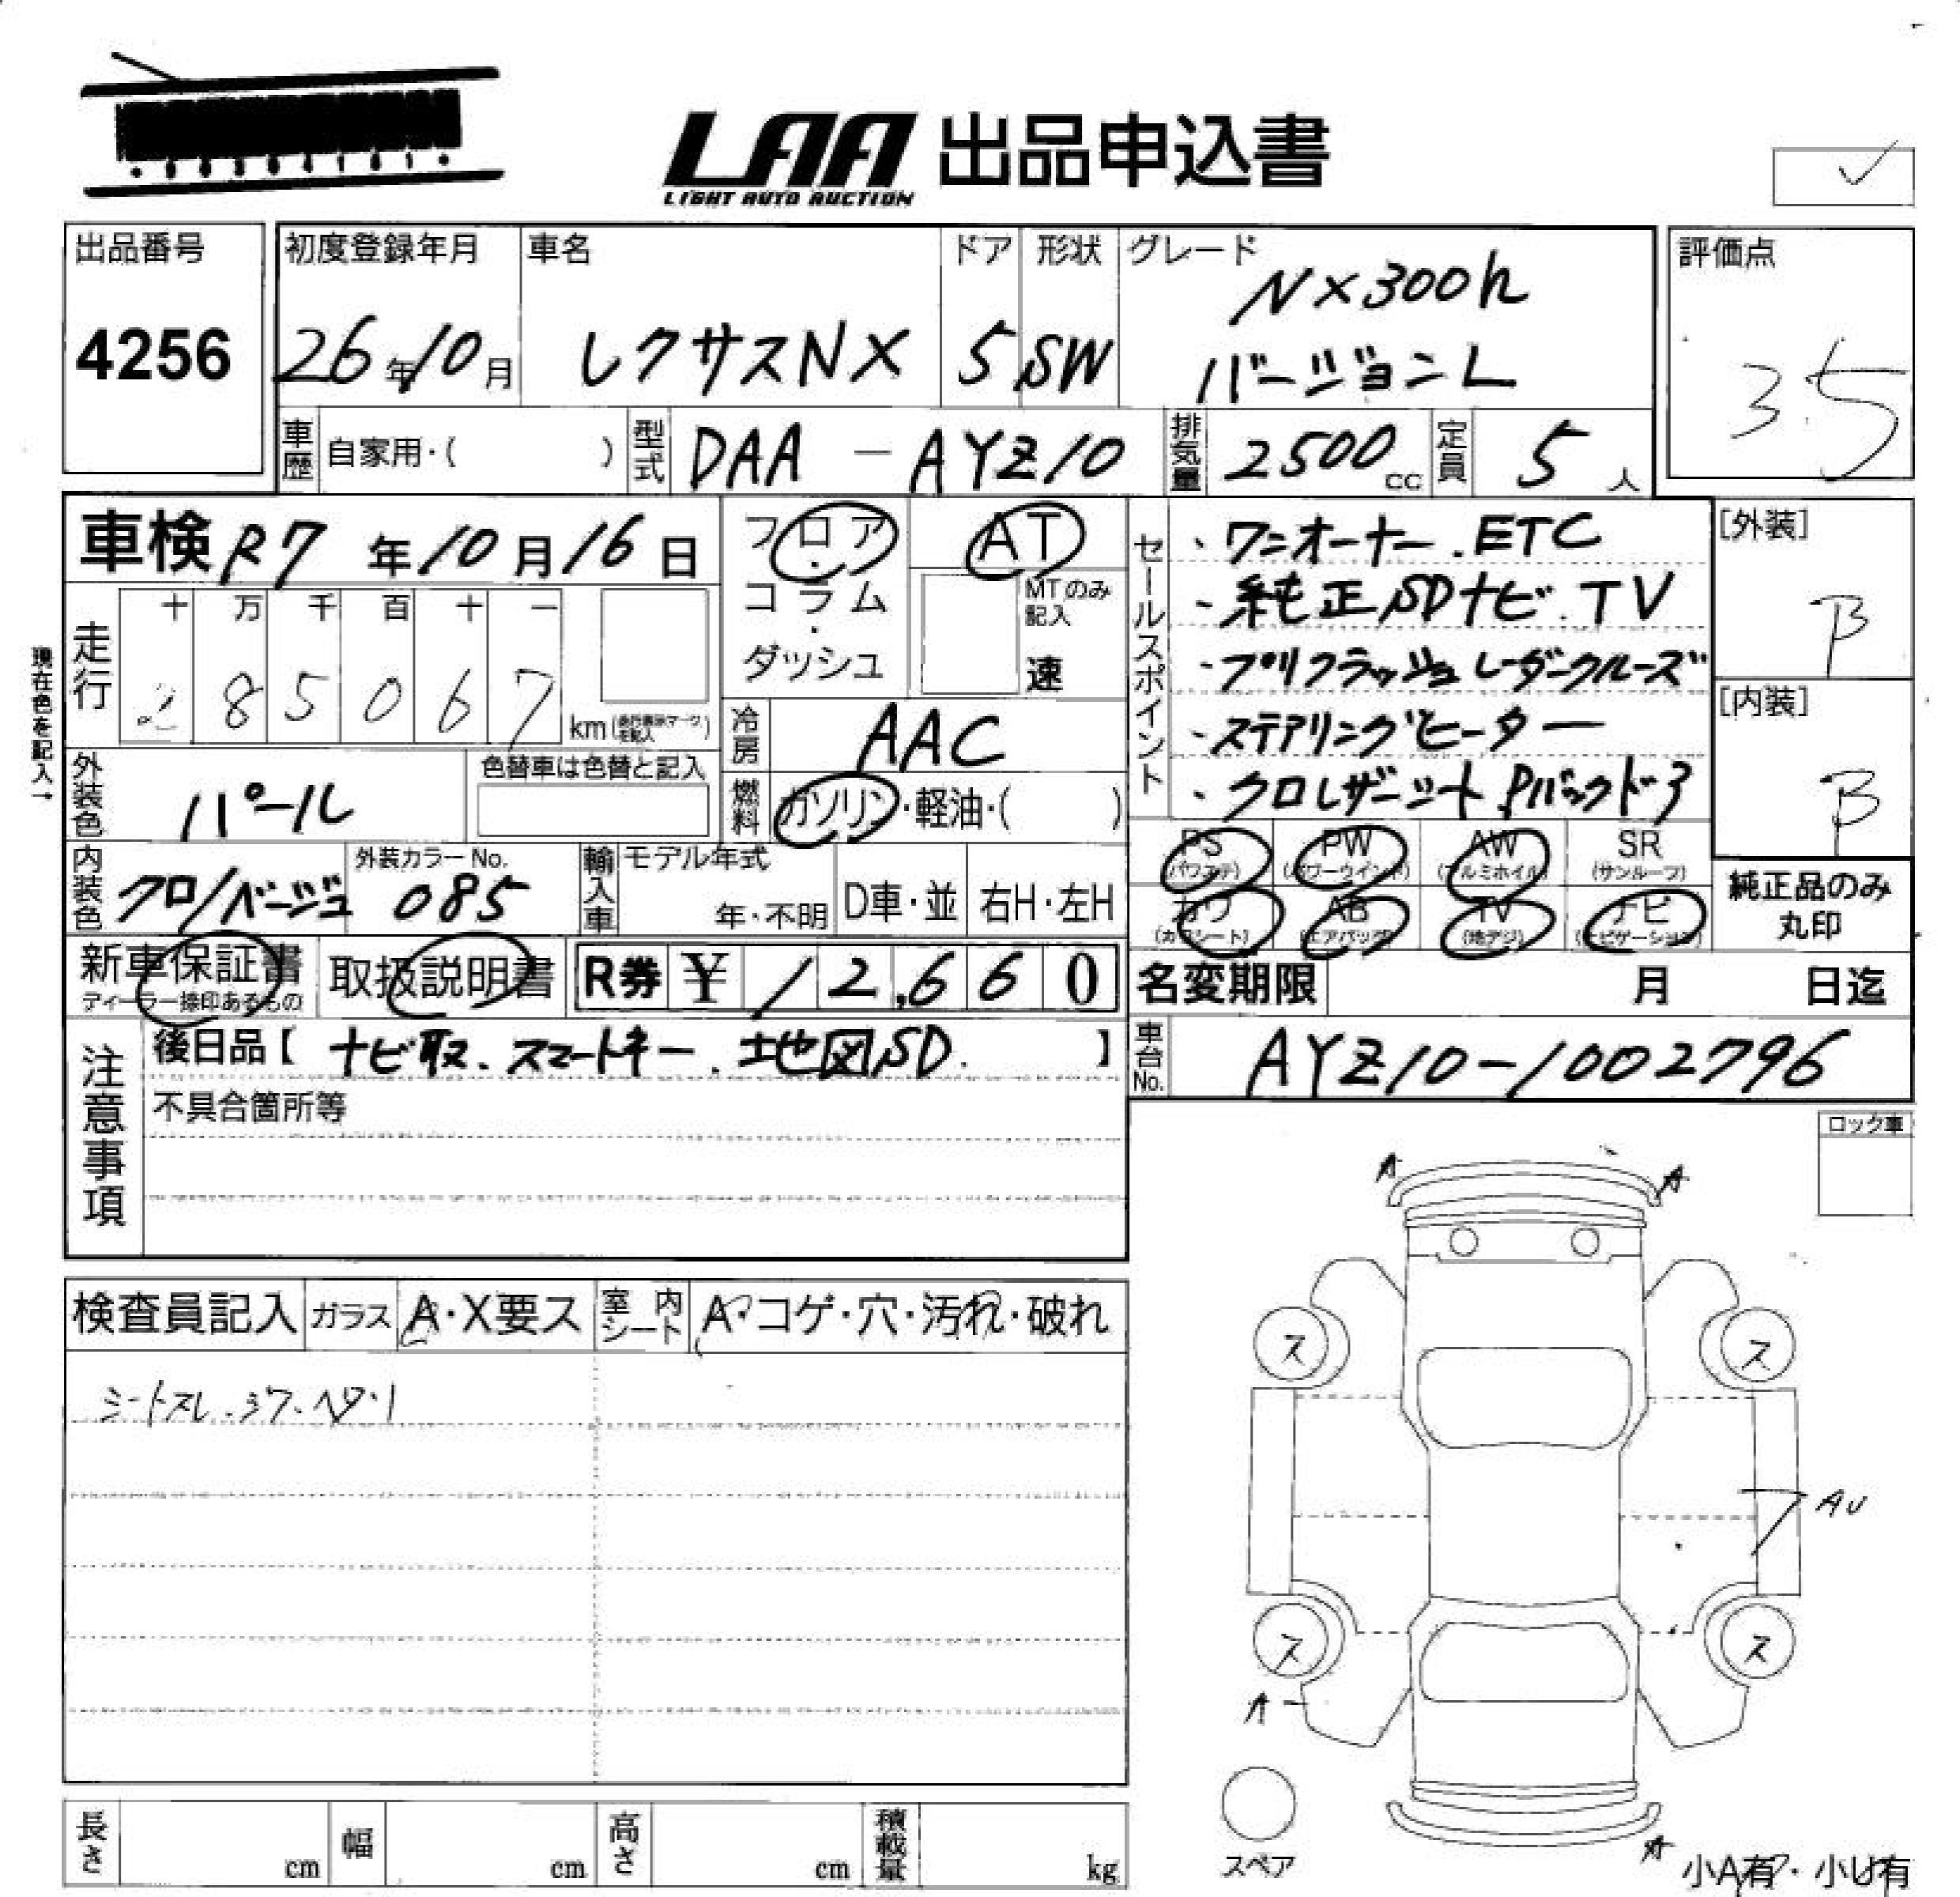 LAA 出品申込書
LIGHT AUTO AUCTION
出品番号
4256
初度登録年月
26年10月
車名
レクサスNX
ドア
5
形状
SW
グレード
NX300h
バージョンL
評価点
3.5
車歴 自家用・( )
型式 DAA-AYZ10
排気量 2500cc
定員 5人
車検 R7年10月16日
フロア・コラム・ダッシュ
AT
MTのみ記入
速
セールスポイント
・ワンオーナー.ETC
・純正SDナビ.TV
・プリクラッシュレーダークルーズ
・ステアリングヒーター
・クロレザーシートPバックドア
[外装]
B
[内装]
B
現在色を記入→
走行
十 万 千 百 十 一
2 8 5 0 6 7 km
冷房 AAC
外装色 パール
色替車は色替と記入
燃料 ガソリン・軽油・( )
内装色 クロ/ベージュ
外装カラーNo.
085
輸入車
モデル年式
年・不明
D車・並
右H・左H
PS (パワステ)
PW (パワーウインド)
AW (アルミホイル)
SR (サンルーフ)
カワ (カワシート)
AB (エアバッグ)
TV (地デジ)
ナビ (ナビゲーション)
純正品のみ丸印
新車保証書
ディーラー捺印あるもの
取扱説明書
R券 ¥ 12,660
名変期限 月 日迄
注意事項
後日品【 ナビ取.スマートキー.地図SD. 】
不具合箇所等
車台No. AYZ10-1002796
ロック車
検査員記入
ガラス A・X要ス
室内シート A・コゲ・穴・汚れ・破れ
シートスレ.シワ.ヘタリ
A
A
ス
ス
AU
ス
ス
A
スペア
A
小A有・小U有
長さ cm
幅 cm
高さ cm
積載量 kg